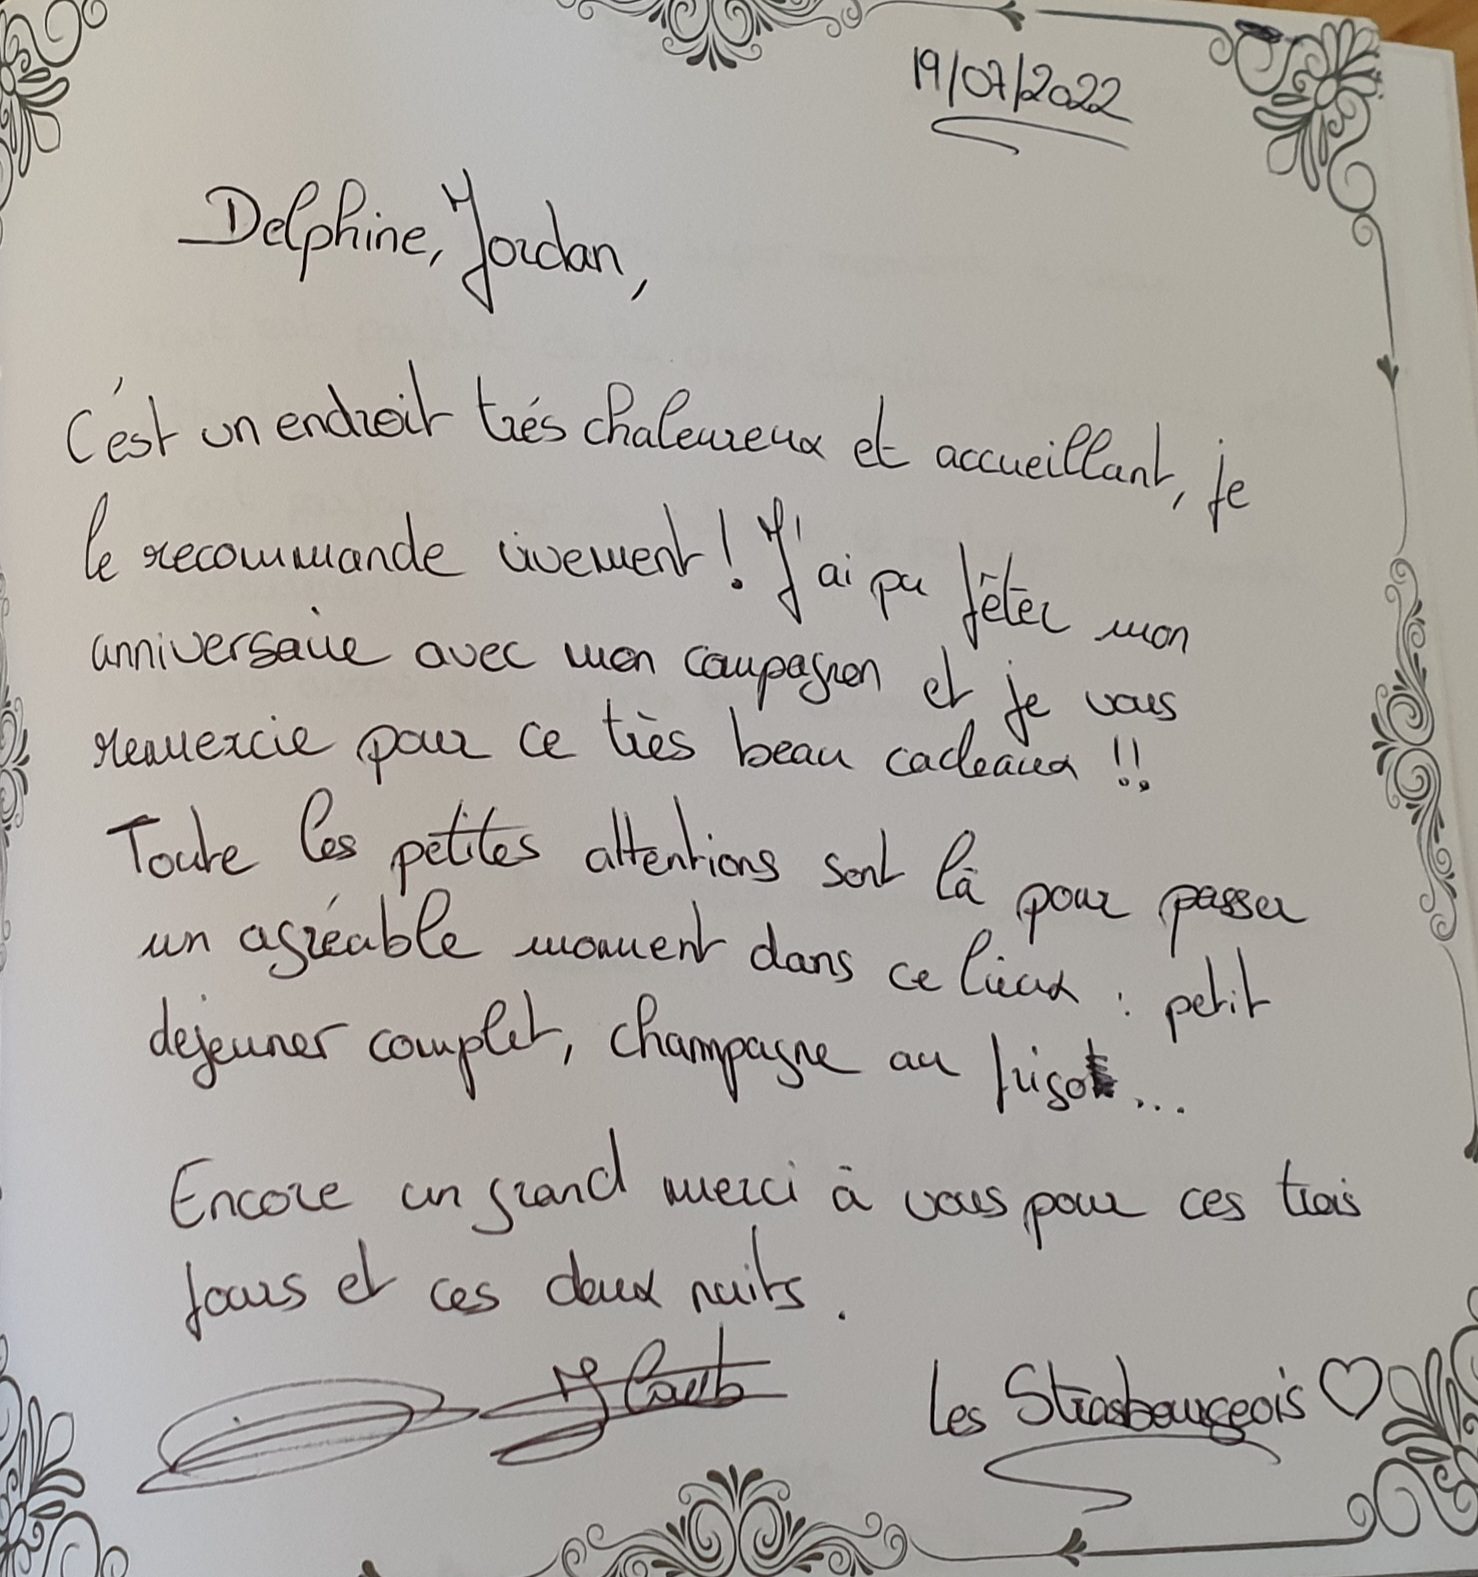 19/07/2022
Delphine, Jordan,
C'est un endroit trés chaleureux et accueillant, je
le recommande vivement ! J'ai pu fêter mon
anniversaire avec mon compagnon et je vous
remercie pour ce très beau cadeaux !!
Toute les petites attentions sont là pour passer
un agréable moment dans ce lieux : petit
dejeuner complet, champagne au frigo ...
Encore un grand merci à vous pour ces trois
jours et ces deux nuits.
Les Strasbourgeois ♡